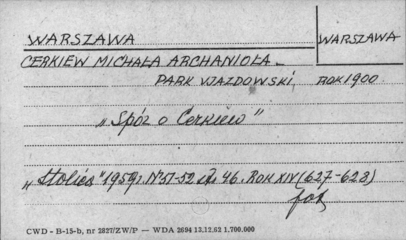 WARSZAWA
WARSZAWA
CERKIEW MICHAŁA ARCHANIOŁA -
PARK UJAZDOWSKI, ROK 1900.
„Spór o Cerkiew"
„Stolica" 1959r. Nº 51-52 str. 46. ROK XIV (627-628)
fot.
CWD - B-15-b, nr 2827/ZW/P — WDA 2694 12.12.62 1.700.000